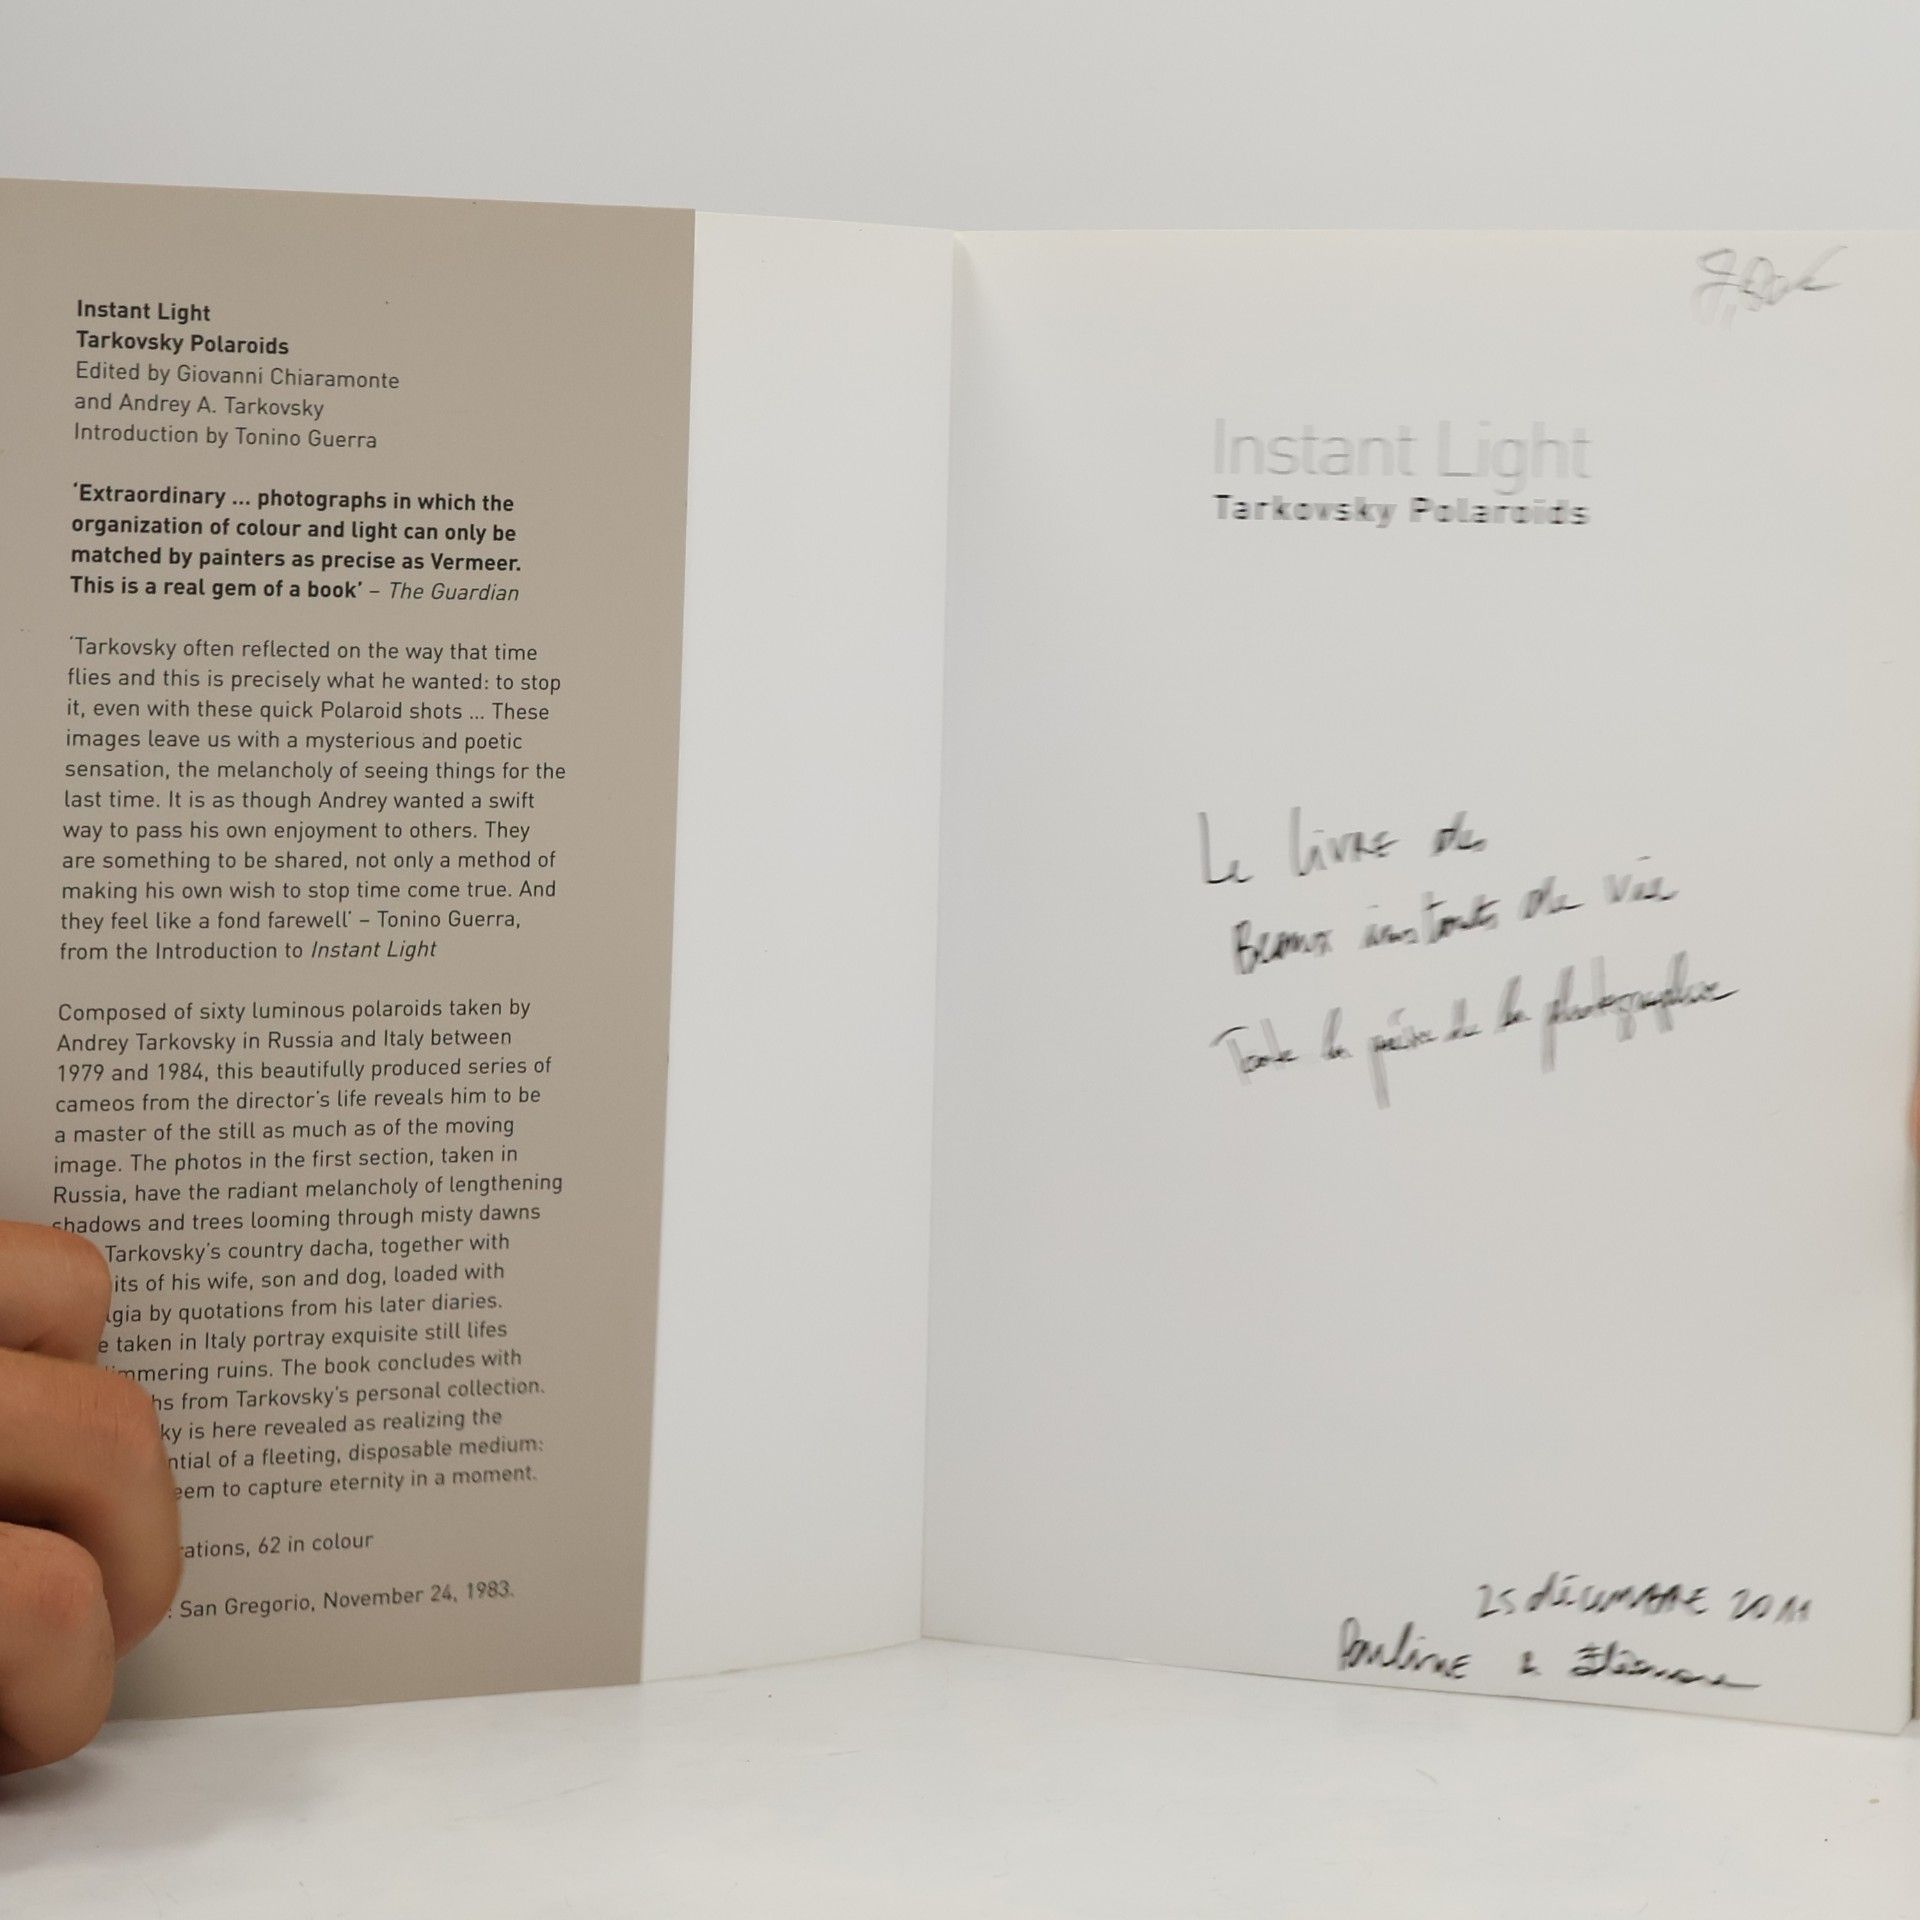 Instant Light
Tarkovsky Polaroids
Edited by Giovanni Chiaramonte
and Andrey A. Tarkovsky
Introduction by Tonino Guerra
‘Extraordinary ... photographs in which the
organization of colour and light can only be
matched by painters as precise as Vermeer.
This is a real gem of a book’ – The Guardian
‘Tarkovsky often reflected on the way that time
flies and this is precisely what he wanted: to stop
it, even with these quick Polaroid shots ... These
images leave us with a mysterious and poetic
sensation, the melancholy of seeing things for the
last time. It is as though Andrey wanted a swift
way to pass his own enjoyment to others. They
are something to be shared, not only a method of
making his own wish to stop time come true. And
they feel like a fond farewell’ – Tonino Guerra,
from the Introduction to Instant Light
Composed of sixty luminous polaroids taken by
Andrey Tarkovsky in Russia and Italy between
1979 and 1984, this beautifully produced series of
cameos from the director's life reveals him to be
a master of the still as much as of the moving
image. The photos in the first section, taken in
Russia, have the radiant melancholy of lengthening
shadows and trees looming through misty dawns
Tarkovsky's country dacha, together with
its of his wife, son and dog, loaded with
lgia by quotations from his later diaries.
e taken in Italy portray exquisite still lifes
mmering ruins. The book concludes with
hs from Tarkovsky's personal collection.
ky is here revealed as realizing the
ntial of a fleeting, disposable medium:
eem to capture eternity in a moment.
rations, 62 in colour
: San Gregorio, November 24, 1983.
Instant Light
Tarkovsky Polaroids
Le livre de
Beaux instants de vie
Toute la poésie de la photographie
25 décembre 2011
Pauline &